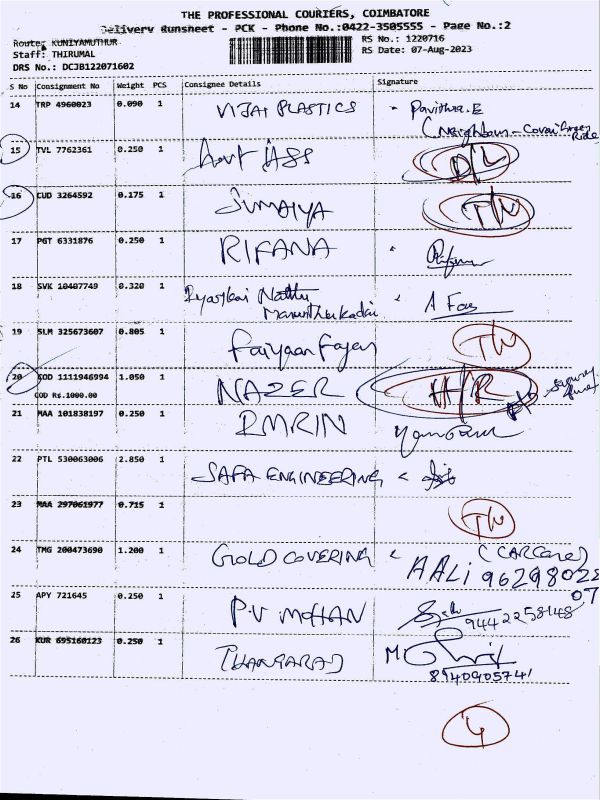 THE PROFESSIONAL COURIERS, COIMBATORE
Delivery Runsheet - PCK - Phone No.:0422-3505555 - Page No.:2
Route: KUNIYAMUTHUR
RS No.: 1220716
Staff: THIRUMAL
RS Date: 07-Aug-2023
DRS No.: DCJB122071602
S No Consignment No Weight PCS Consignee Details Signature
14 TRP 4960023 0.090 1 VIJAI PLASTICS Pavithra.E
15 TVL 7762361 0.250 1 D/L
16 CUD 3264592 0.175 1 JUMAIYA T/N
17 PGT 6331876 0.250 1 RIFANA
18 SVK 10407749 0.320 1 Nattu
Marunthukadai
19 SLM 325673607 0.805 1 Faiyaan T/N
20 COD 1111946994 1.050 1 NAZER H/R
COD Rs.1000.00
21 MAA 101838197 0.250 1
22 PTL 530063006 2.850 1 SAFA ENGINEERING
23 MAA 297061977 0.715 1 T/N
24 TMG 200473690 1.200 1 GOLD COVERING
AALi 96298028
07
25 APY 721645 0.250 1 P.V MOHAN
9442258148
26 KUR 695160123 0.250 1 THANGARAJ
8940905741
4